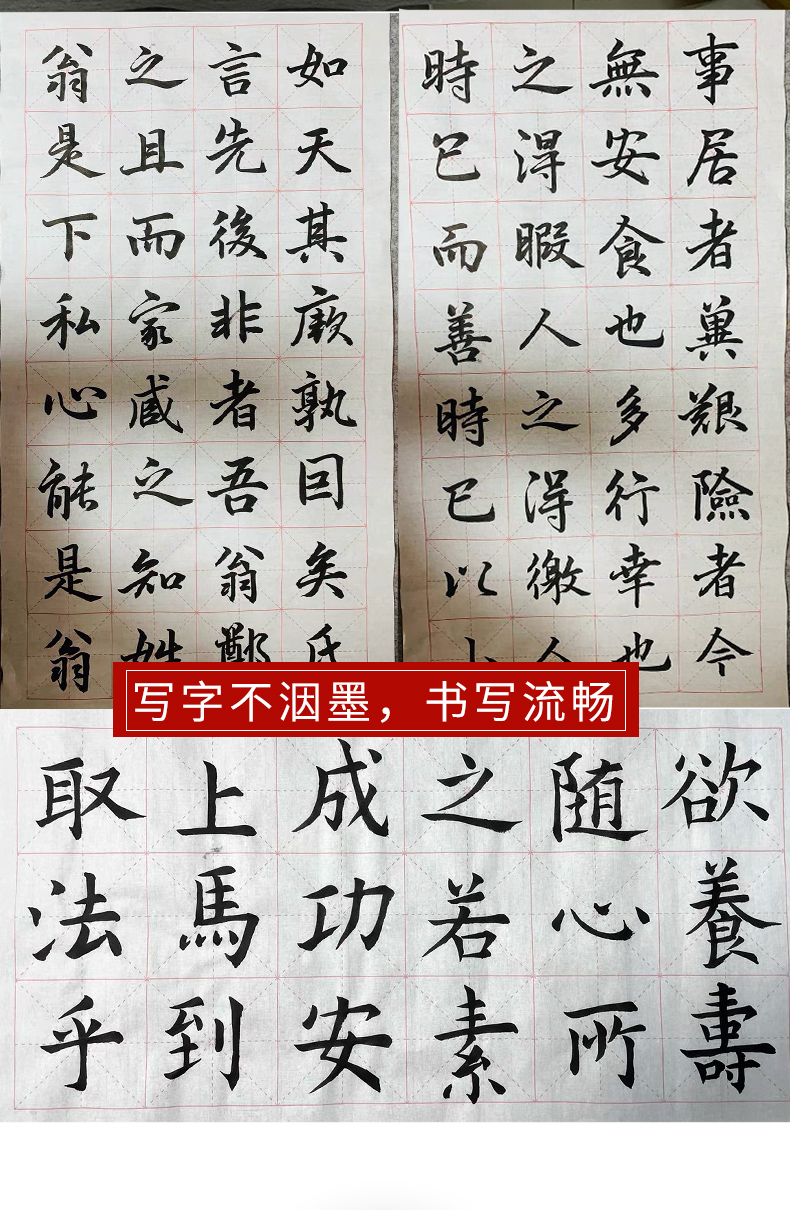 如天其厥孰回矣氏
言先後非者吾翁鄭
之且而家咸之知姓
翁是下私心能是翁
事居者艱險者今
無安食也多行幸也
之得暇人之得徼人
時已而善時已以
写字不洇墨，书写流畅
欲養壽
随心所
之若素
成功安
上馬到
取法乎